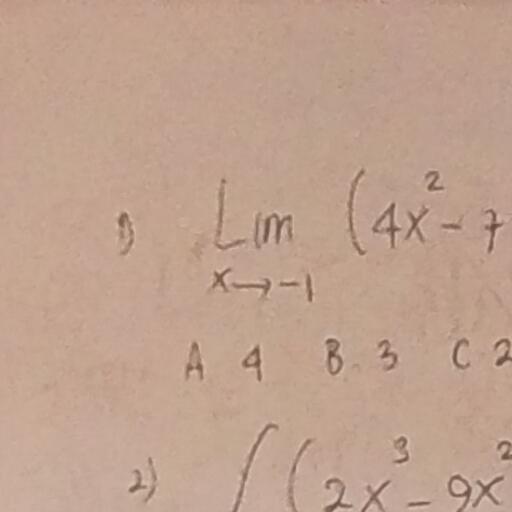 1) Lim (4x² - 7
x → -1
A 4 B. 3 C 2
2) ∫ (2x³ - 9x²